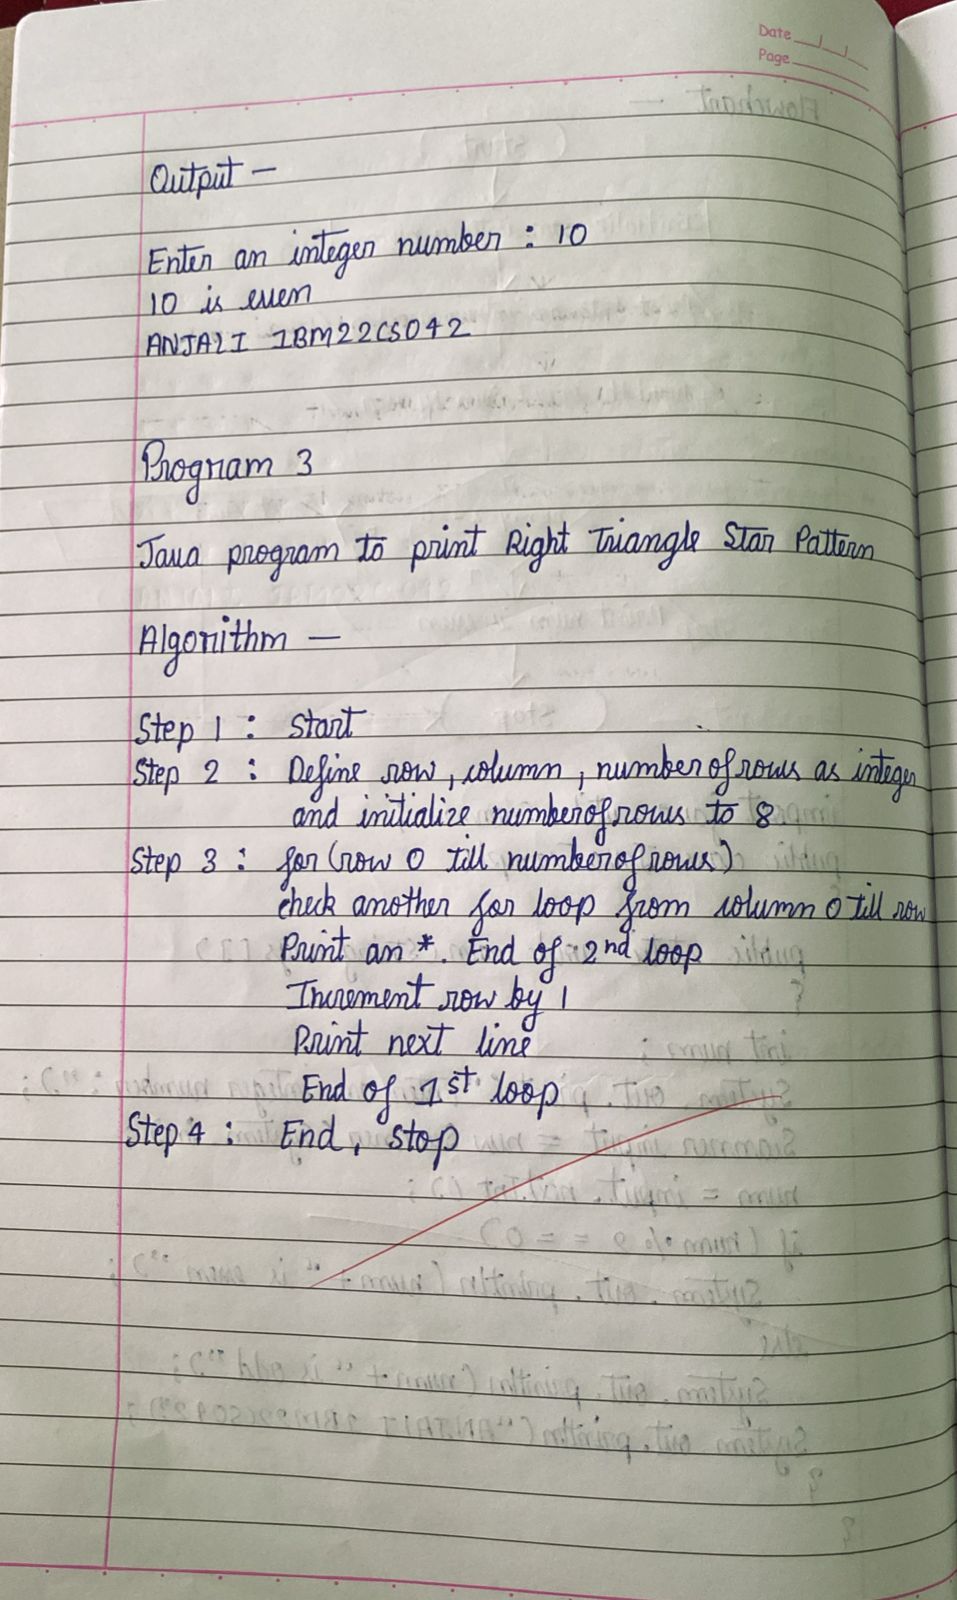 Date
Page
Output —
Enter an integer number : 10
10 is even
ANJALI 1BM22CS042
Program 3
Java program to print Right Triangle Star Pattern
Algorithm —
Step 1 : Start
Step 2 : Define row, column, numberofrows as integer
and initialize numberofrows to 8.
Step 3 : for (row 0 till numberofrows)
check another for loop from column 0 till row
Print an *. End of 2nd loop
Increment row by 1
Print next line
End of 1st loop
Step 4 : End, stop